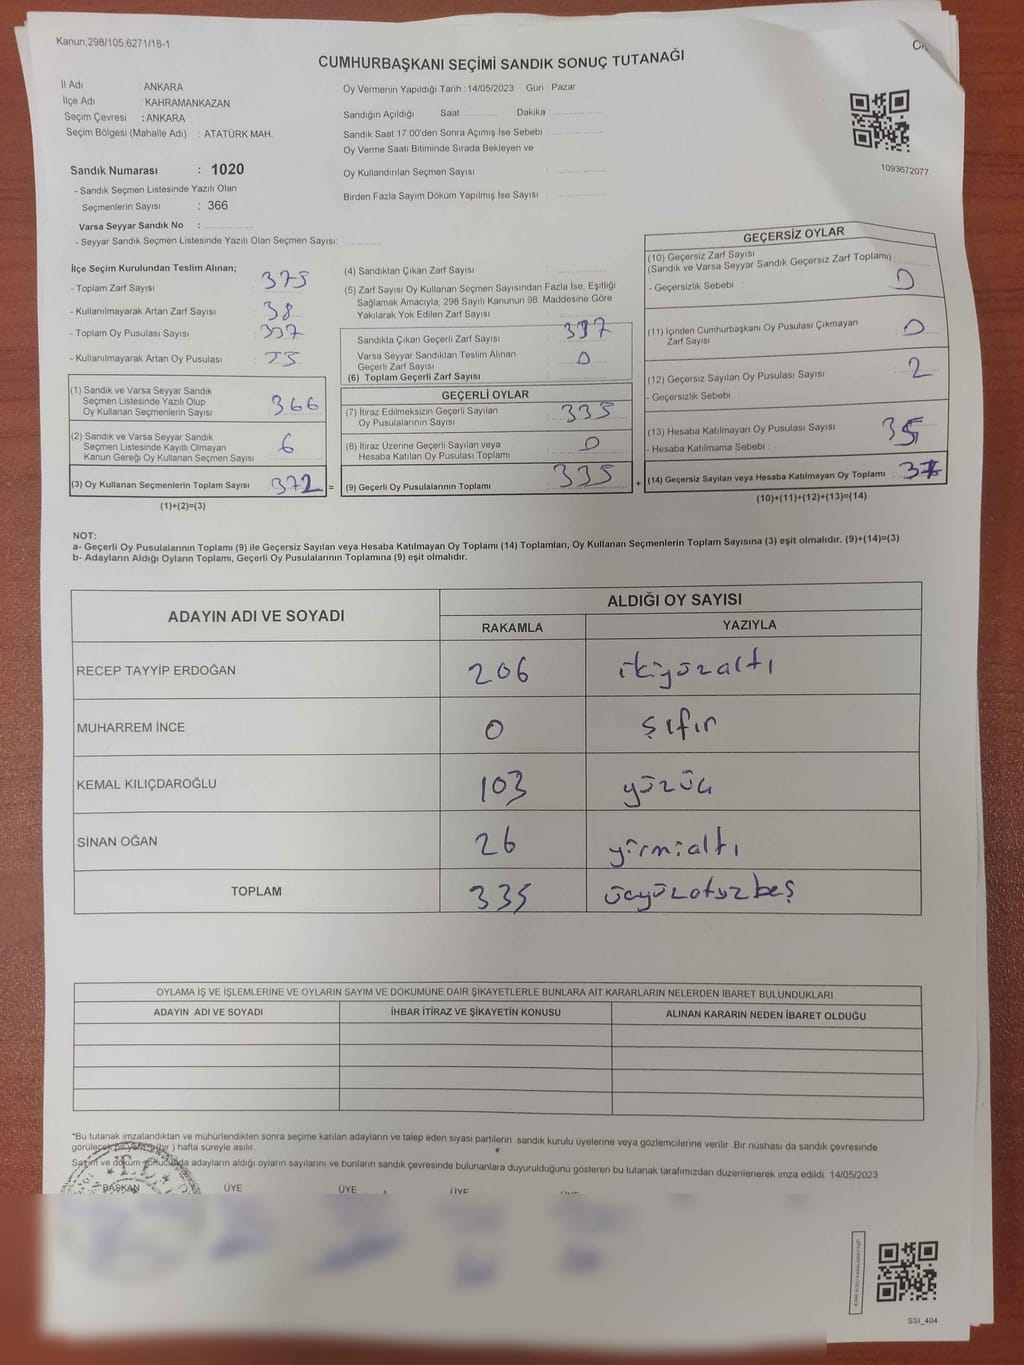 Kanun,298/105,6271/18-1
CUMHURBAŞKANI SEÇİMİ SANDIK SONUÇ TUTANAĞI
İl Adı : ANKARA
İlçe Adı : KAHRAMANKAZAN
Seçim Çevresi : ANKARA
Seçim Bölgesi (Mahalle Adı) : ATATÜRK MAH.
Sandık Numarası : 1020
- Sandık Seçmen Listesinde Yazılı Olan
Seçmenlerin Sayısı : 366
Varsa Seyyar Sandık No :
- Seyyar Sandık Seçmen Listesinde Yazılı Olan Seçmen Sayısı:
Oy Vermenin Yapıldığı Tarih : 14/05/2023 Gün : Pazar
Sandığın Açıldığı Saat : Dakika :
Sandık Saat 17.00'den Sonra Açımış İse Sebebi :
Oy Verme Saati Bitiminde Sırada Bekleyen ve
Oy Kullandırılan Seçmen Sayısı :
Birden Fazla Sayım Döküm Yapılmış İse Sayısı :
1093672077
İlçe Seçim Kurulundan Teslim Alınan;
- Toplam Zarf Sayısı : 375
- Kullanılmayarak Artan Zarf Sayısı : 38
- Toplam Oy Pusulası Sayısı : 337
- Kullanılmayarak Artan Oy Pusulası :
(1) Sandık ve Varsa Seyyar Sandık
Seçmen Listesinde Yazılı Olup
Oy Kullanan Seçmenlerin Sayısı : 366
(2) Sandık ve Varsa Seyyar Sandık
Seçmen Listesinde Kayıtlı Olmayan
Kanun Gereği Oy Kullanan Seçmen Sayısı : 6
(3) Oy Kullanan Seçmenlerin Toplam Sayısı : 372 =
(1)+(2)=(3)
(4) Sandıktan Çıkan Zarf Sayısı :
(5) Zarf Sayısı Oy Kullanan Seçmen Sayısından Fazla İse, Eşitliği
Sağlamak Amacıyla, 298 Sayılı Kanunun 98. Maddesine Göre
Yakılarak Yok Edilen Zarf Sayısı :
Sandıkta Çıkan Geçerli Zarf Sayısı : 337
Varsa Seyyar Sandıktan Teslim Alınan
Geçerli Zarf Sayısı : 0
(6) Toplam Geçerli Zarf Sayısı :
GEÇERLİ OYLAR
(7) İtiraz Edilmeksizin Geçerli Sayılan
Oy Pusulalarının Sayısı : 335
(8) İtiraz Üzerine Geçerli Sayılan veya
Hesaba Katılan Oy Pusulası Toplamı : 0
(9) Geçerli Oy Pusulalarının Toplamı : 335 +
GEÇERSİZ OYLAR
(10) Geçersiz Zarf Sayısı
(Sandık ve Varsa Seyyar Sandık Geçersiz Zarf Toplamı)
- Geçersizlik Sebebi : 0
(11) İçinden Cumhurbaşkanı Oy Pusulası Çıkmayan
Zarf Sayısı : 0
(12) Geçersiz Sayılan Oy Pusulası Sayısı : 2
- Geçersizlik Sebebi :
(13) Hesaba Katılmayan Oy Pusulası Sayısı : 35
- Hesaba Katılmama Sebebi :
(14) Geçersiz Sayılan veya Hesaba Katılmayan Oy Toplamı :
(10)+(11)+(12)+(13)=(14)
NOT:
a- Geçerli Oy Pusulalarının Toplamı (9) ile Geçersiz Sayılan veya Hesaba Katılmayan Oy Toplamı (14) Toplamları, Oy Kullanan Seçmenlerin Toplam Sayısına (3) eşit olmalıdır. (9)+(14)=(3)
b- Adayların Aldığı Oyların Toplamı, Geçerli Oy Pusulalarının Toplamına (9) eşit olmalıdır.
ADAYIN ADI VE SOYADI ALDIĞI OY SAYISI
RAKAMLA YAZIYLA
RECEP TAYYİP ERDOĞAN 206 ikiyüzaltı
MUHARREM İNCE 0 şıfır
KEMAL KILIÇDAROĞLU 103 yüzüç
SİNAN OĞAN 26 yirmialtı
TOPLAM 335 üçyüzotuzbeş
OYLAMA İŞ VE İŞLEMLERİNE VE OYLARIN SAYIM VE DÖKÜMÜNE DAİR ŞİKAYETLERLE BUNLARA AİT KARARLARIN NELERDEN İBARET BULUNDUKLARI
ADAYIN ADI VE SOYADI İHBAR İTİRAZ VE ŞİKAYETİN KONUSU ALINAN KARARIN NEDEN İBARET OLDUĞU
*Bu tutanak imzalandıktan ve mühürlendikten sonra seçime katılan adayların ve talep eden siyasi partilerin sandık kurulu üyelerine veya gözlemcilerine verilir. Bir nüshası da sandık çevresinde
görülecek bir yere (bir ) hafta süreyle asılır.
Sayım ve döküm sonucunda adayların aldığı oyların sayılarını ve bunların sandık çevresinde bulunanlara duyurulduğunu gösteren bu tutanak tarafımızdan düzenlenerek imza edildi. 14/05/2023
BAŞKAN ÜYE ÜYE ÜYE ÜYE
SSI_404